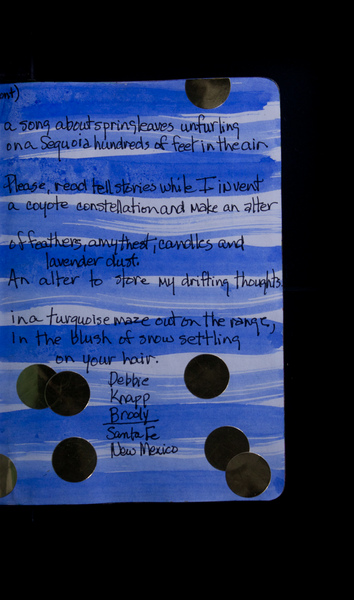 ont)
a song about spring leaves unfurling
on a Sequoia hundreds of feet in the air.
Please, read tell stories while I invent
a coyote constellation and make an alter
of feathers, amythest, candles and
lavender dust.
An alter to store my drifting thoughts.
in a turquoise maze out on the range,
in the blush of snow settling
on your hair.
Debbie
Knapp
Brody
Santa Fe
New Mexico